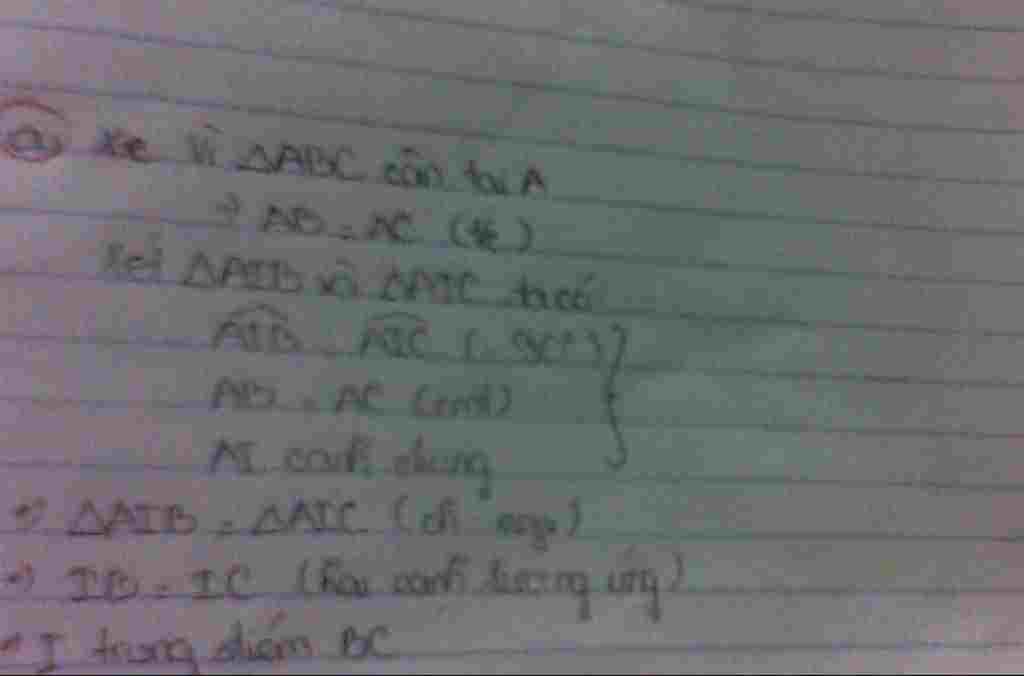 a) Xe vì ΔABC cân tại A
=> AB = AC (tc)
Xét ΔAIB và ΔAIC ta có
AIB = AIC ( 90° )
AB = AC (cmt)
AI cạnh chung
=> ΔAIB = ΔAIC (ch cgv)
=> IB = IC (hai cạnh tương ứng)
=> I trung điểm BC